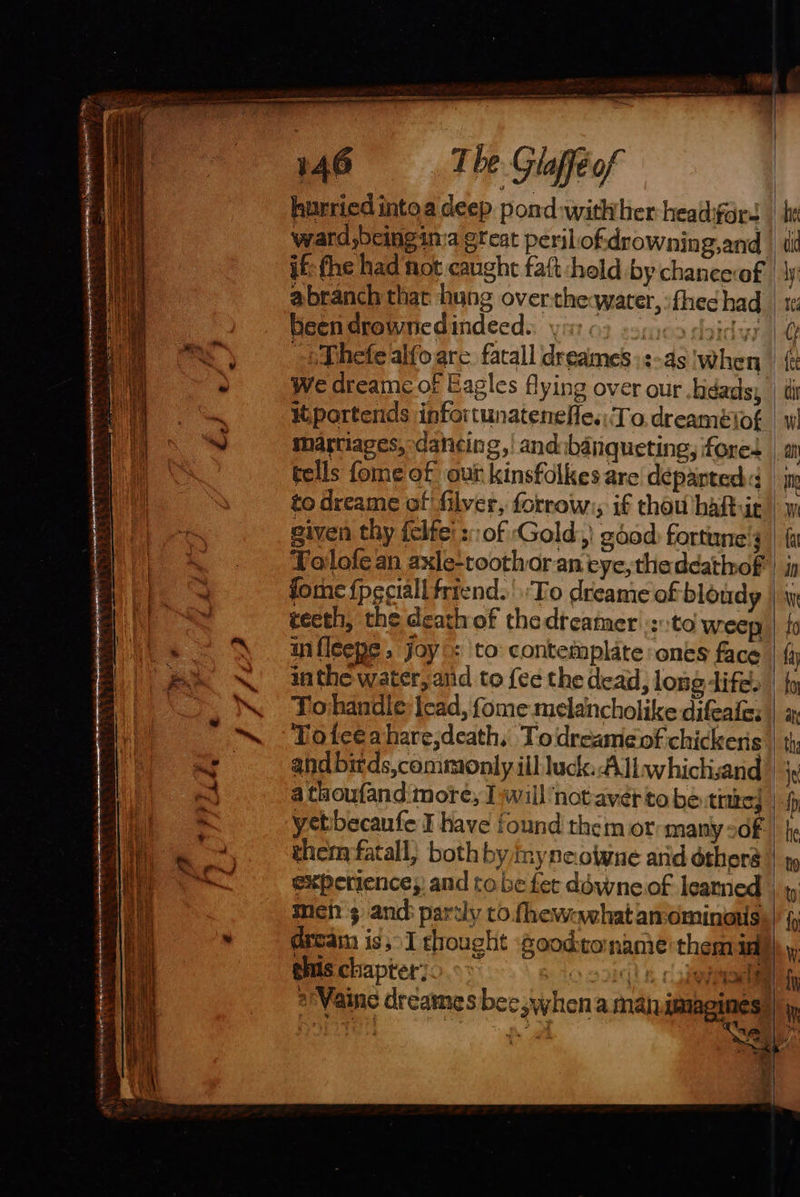 146 The Glaſſe of
hurried into a deep pond with her head for-
ward, being in a great peril of drowning, and
if ſhe had not caught faſt hold by chance of
a branch that hung over the water, ſhee had
been drowned indeed.
Theſe alſo are fatall dreames: as when
we dreame of Eagles flying over our heads,
it portends infortunateneſſe. To dreame of
marriages, dancing, and banqueting, fore-
tells ſome of our kinsfolkes are departed;
to dreame of ſilver, ſorrow; if thou haſt it
given thy ſelfe: of Gold, good fortune;
To loſe an axle-tooth or an eye, the death of
ſome ſpeciall friend. To dreame of bloudy
teeth, the death of the dreamer: to weep
in ſleepe, joy: to contemplate ones face
in the water, and to ſee the dead, long life.
To handle lead, ſome melancholike diſeaſe:
To ſee a hare, death. To dreame of chickens
and birds, commonly ill luck. All which, and
a thouſand more, I will not aver to be true;
yet becauſe I have found them or many of
them fatall, both by my neowne and others
experience, and to be ſet downe of learned
men; and partly to ſhew what an ominous
dream is, I thought good to name them in
this chapter.
Vaine dreames bee, when a man imagines